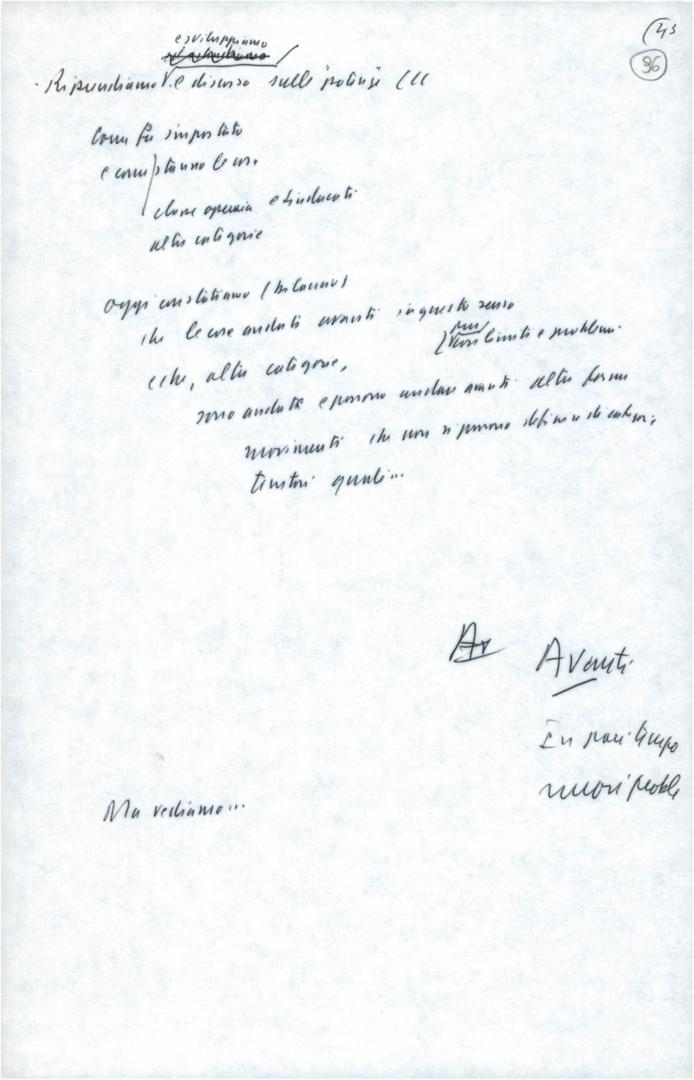 43
96
e sviluppiamo
Riprendiamo il discorso sulle
Come fu impostato
e come stanno le cose
classe operaia e sindacati
altre categorie
Oggi constatiamo (bilancio)
che le cose andate avanti in questo senso
pur
limiti e problemi.
e che, altre categorie,
sono andate e possono andare avanti altre forme
movimenti che non si possono definire di
quali...
Av Avanti
In pari tempo
nuovi probl
Ma vediamo...